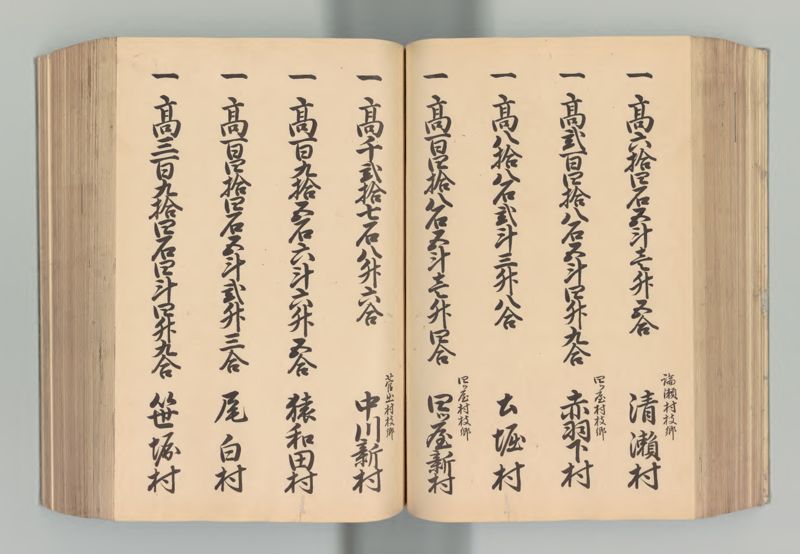 一 高六拾四石五斗壱升五合
諭瀬村枝郷
清瀬村
一 高弐百四拾八石五斗四升九合
四ッ屋村枝郷
赤羽下村
一 高八拾八石弐斗三升八合
土堀村
一 高百四拾八石五斗壱升四合
四ッ屋村枝郷
四ッ屋新村
一 高千弐拾七石八升六合
菅出村枝郷
中川新村
一 高百九拾五石六斗六升五合
猿和田村
一 高百四拾四石五斗弐升三合
尾白村
一 高三百九拾四石四斗四升九合
笹堀村